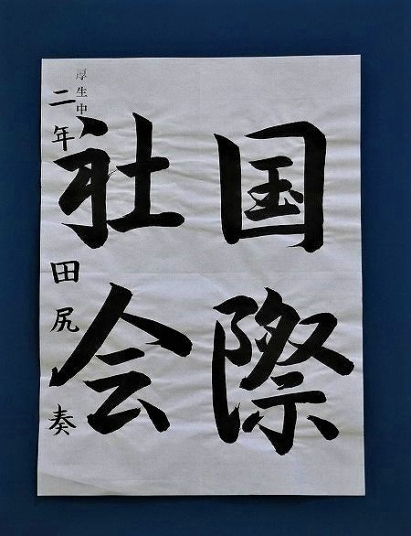 国際
社会
厚生中
二年 田尻 奏